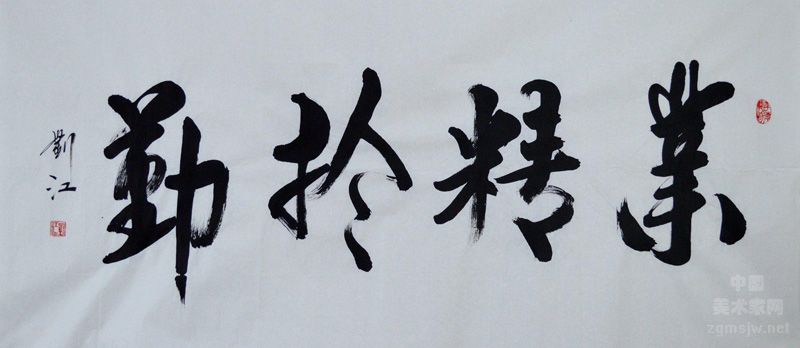 業精於勤
劉江
中国
美术家网
zgmsjw.net